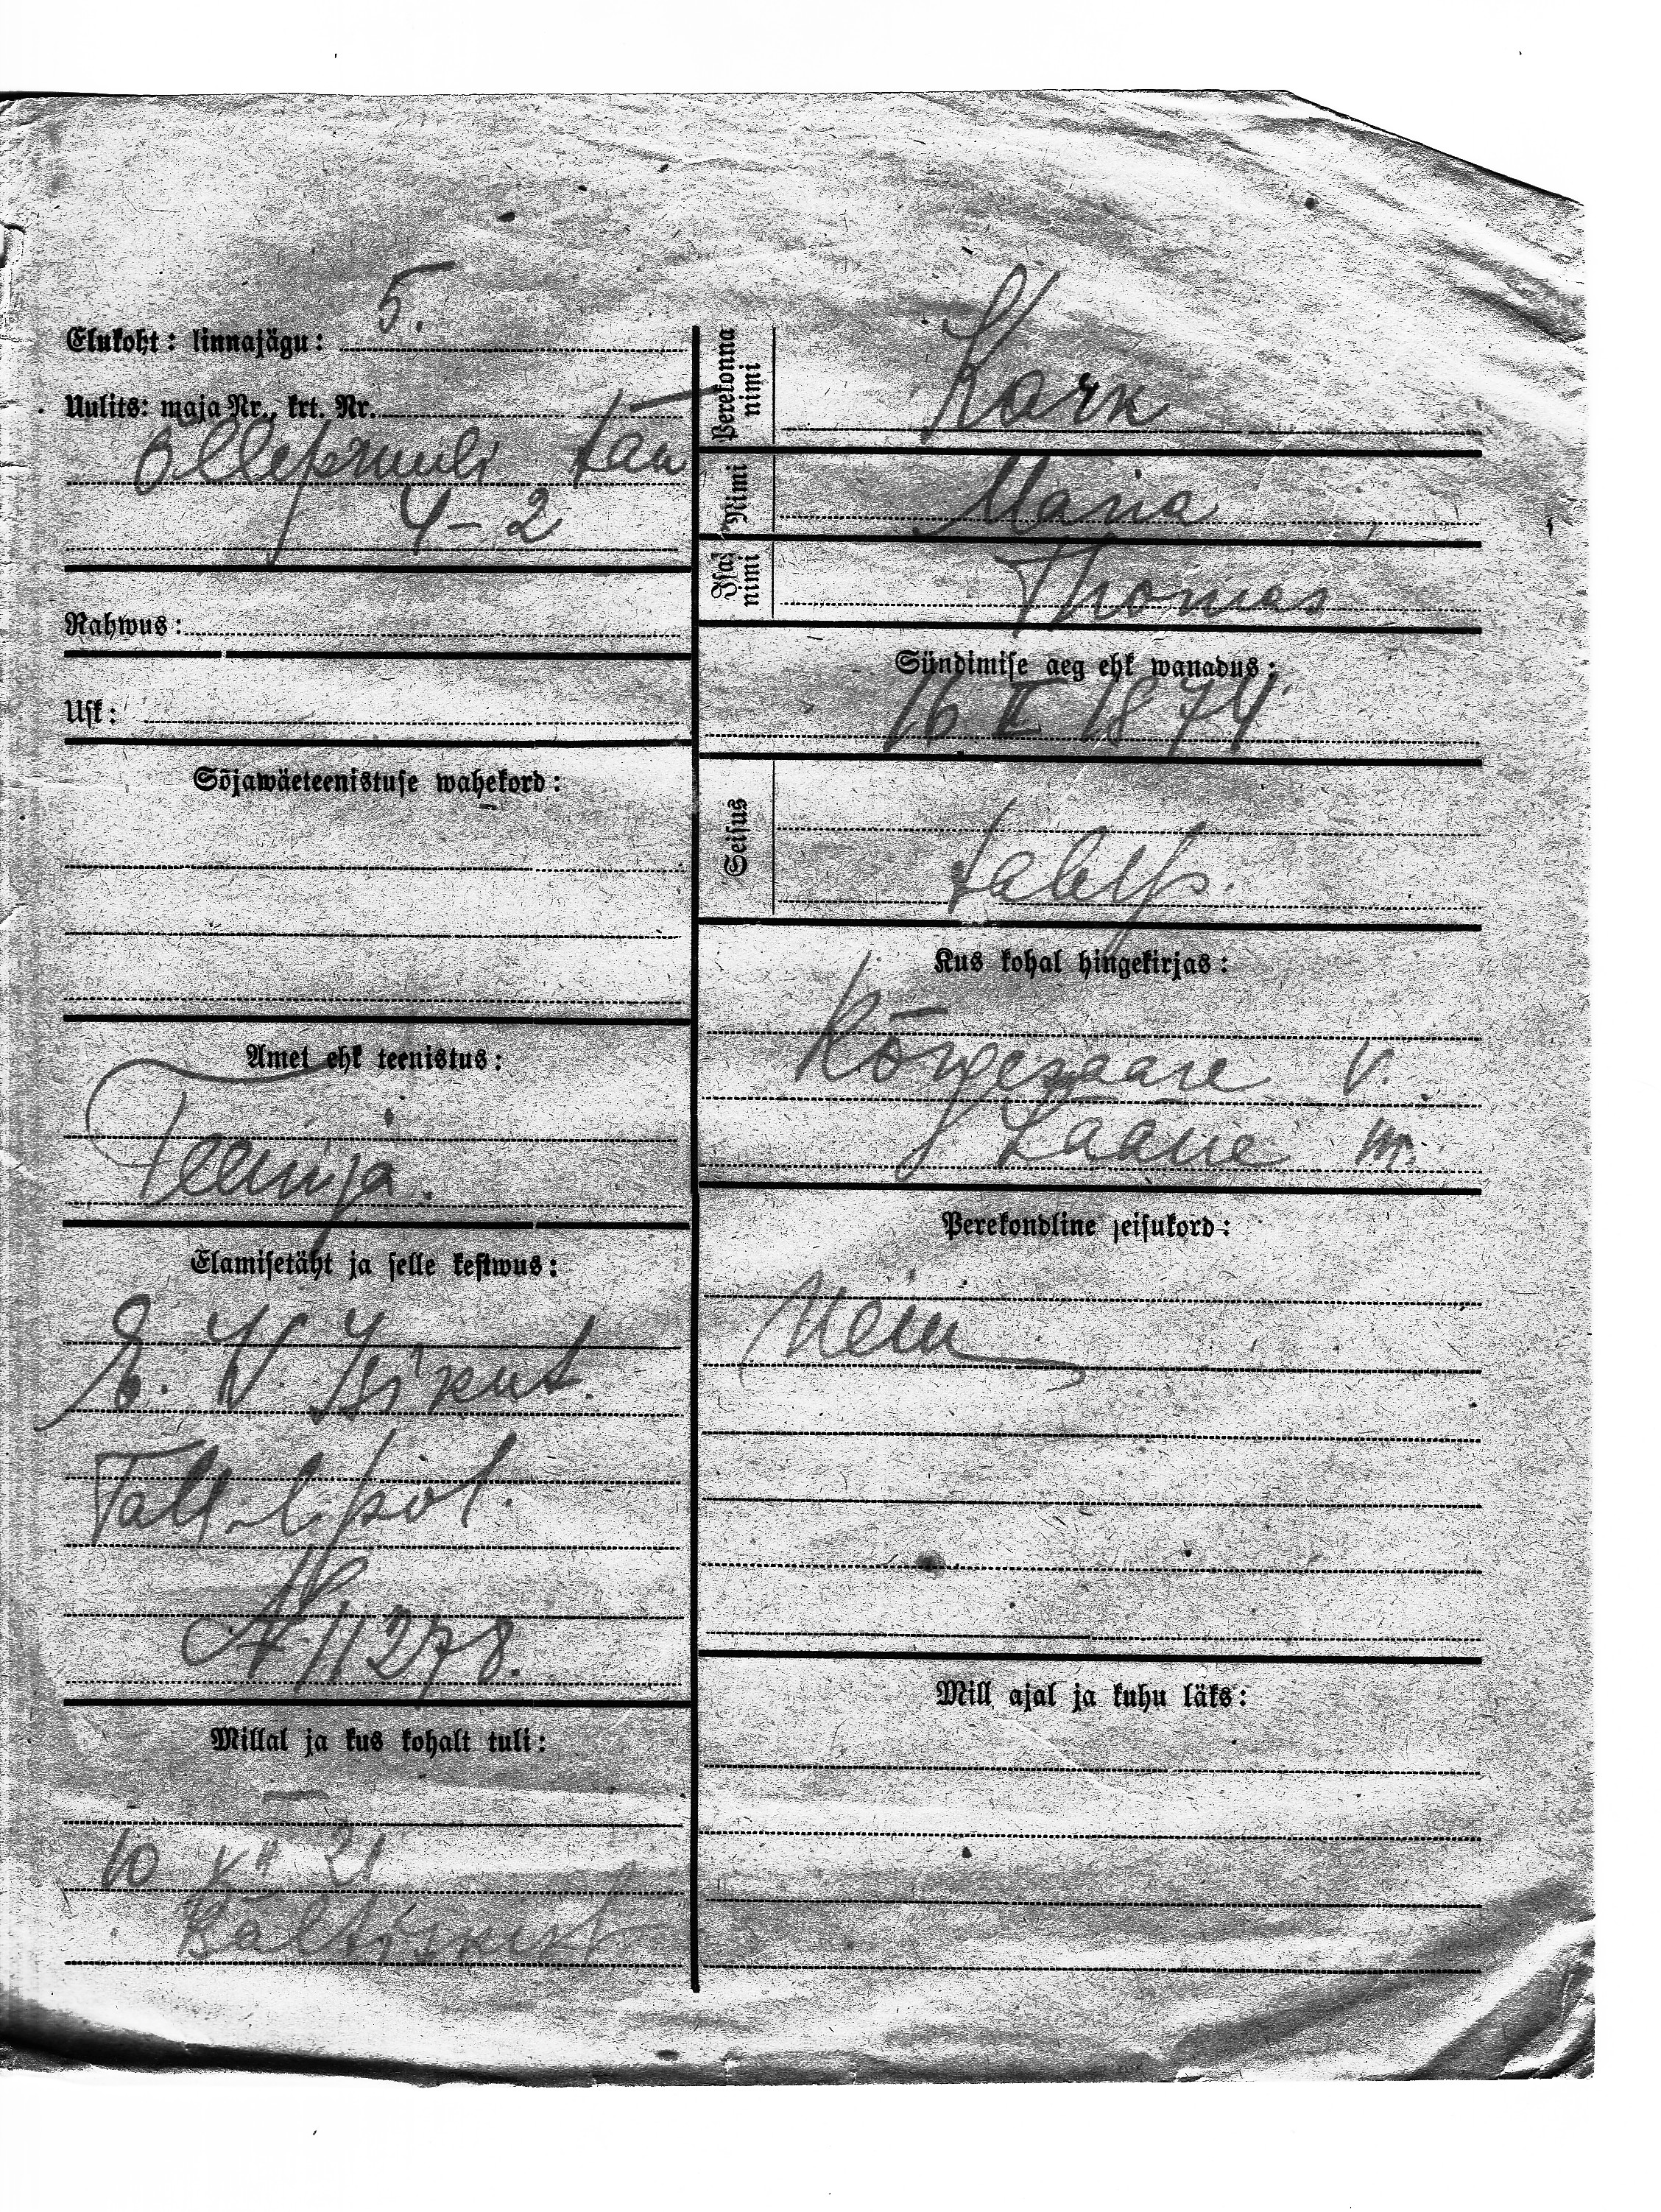 Elukoht: linnajägu: 5.
Uulits: maja Nr., krt. Nr.
Õllepruuli tän
4-2
Rahwus:
Usk:
Sõjawäeteenistuse wahekord:
Amet ehk teenistus:
Teenija.
Elamisetäht ja selle kestwus:
E. W. Isikut.
Tall. l. pol.
№ 11278.
Millal ja kus kohalt tuli:
10 XII 21
Baltiskist
Perekonna nimi
Kark
Nimi
Maria
Isa nimi
Thomas
Sündimise aeg ehk wanadus:
16 II 1874
Seisus
talup.
Kus kohal hingekirjas:
Kõrgesaare v.
Lääne m.
Perekondline seisukord:
Mill ajal ja kuhu läks: